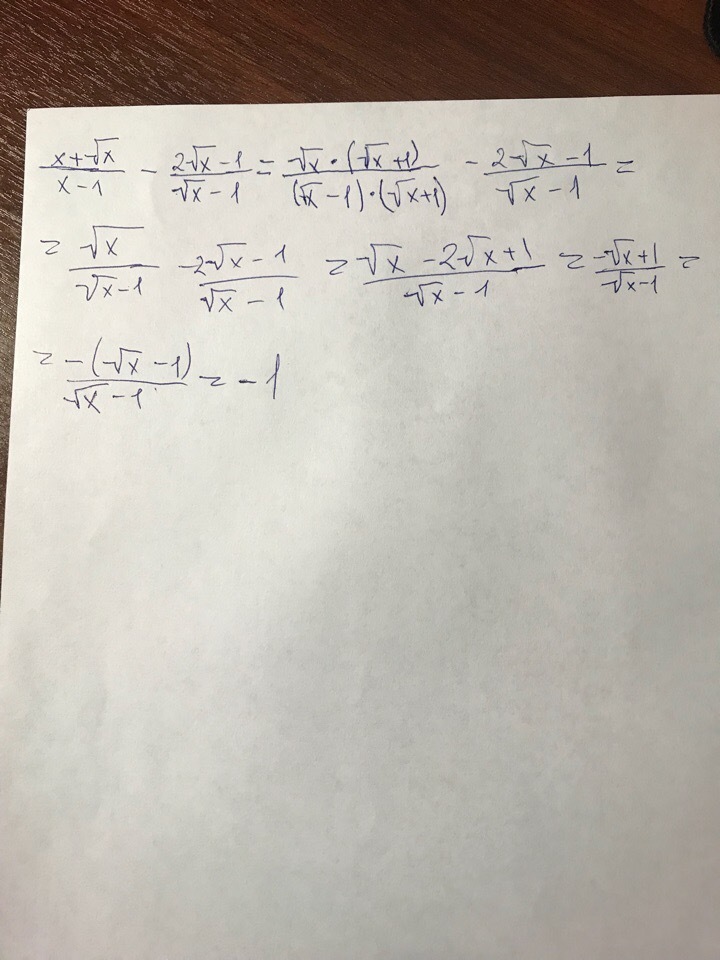 (x+√x)/(x-1) - (2√x-1)/(√x-1) = (√x·(√x+1))/((√x-1)·(√x+1)) - (2√x-1)/(√x-1) =
= √x/(√x-1) - (2√x-1)/(√x-1) = (√x-2√x+1)/(√x-1) = (-√x+1)/(√x-1) =
= (-(√x-1))/(√x-1) = -1